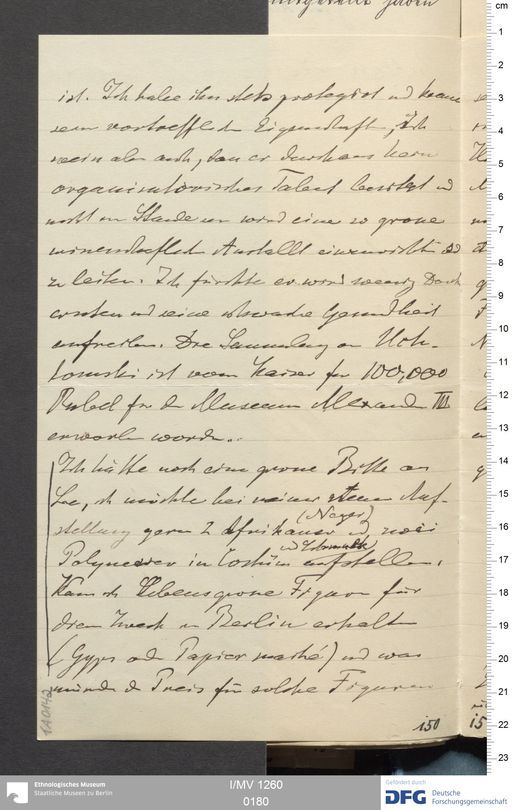 ist. Ich habe ihn stets protegirt und kenne
seine vortrefflichen Eigenschaften, ich
weiss aber auch, dass er durchaus kein
organisatorisches Talent besitzt und
nicht im Stande sein wird eine so grosse
wissenschaftliche Anstallt einzurichten und
zu leiten. Ich fürchte er wird wenig Dank
ernten und seine schwache Gesundheit
aufreiben. Die Sammlung von Uch-
tomski ist vom Kaiser für 100,000
Rubel für das Museum Alexander III
erworben worden.
Ich hätte noch eine grosse Bitte an
Sie, ich möchte bei meiner neuen Auf-
stellung gern 2 Afrikaner (Neger) und zwei
Polynesier in Costüm und Schmuck aufstellen.
Kann ich lebensgrosse Figuren für
diesen Zweck in Berlin erhalten
(Gyps oder Papier maché) und was
würde der Preis für solche Figuren
150
1A0142
cm
1
2
3
4
5
6
7
8
9
10
11
12
13
14
15
16
17
18
19
20
21
22
23
Ethnologisches Museum
Staatliche Museen zu Berlin
I/MV 1260
0180
Gefördert durch
DFG Deutsche
Forschungsgemeinschaft